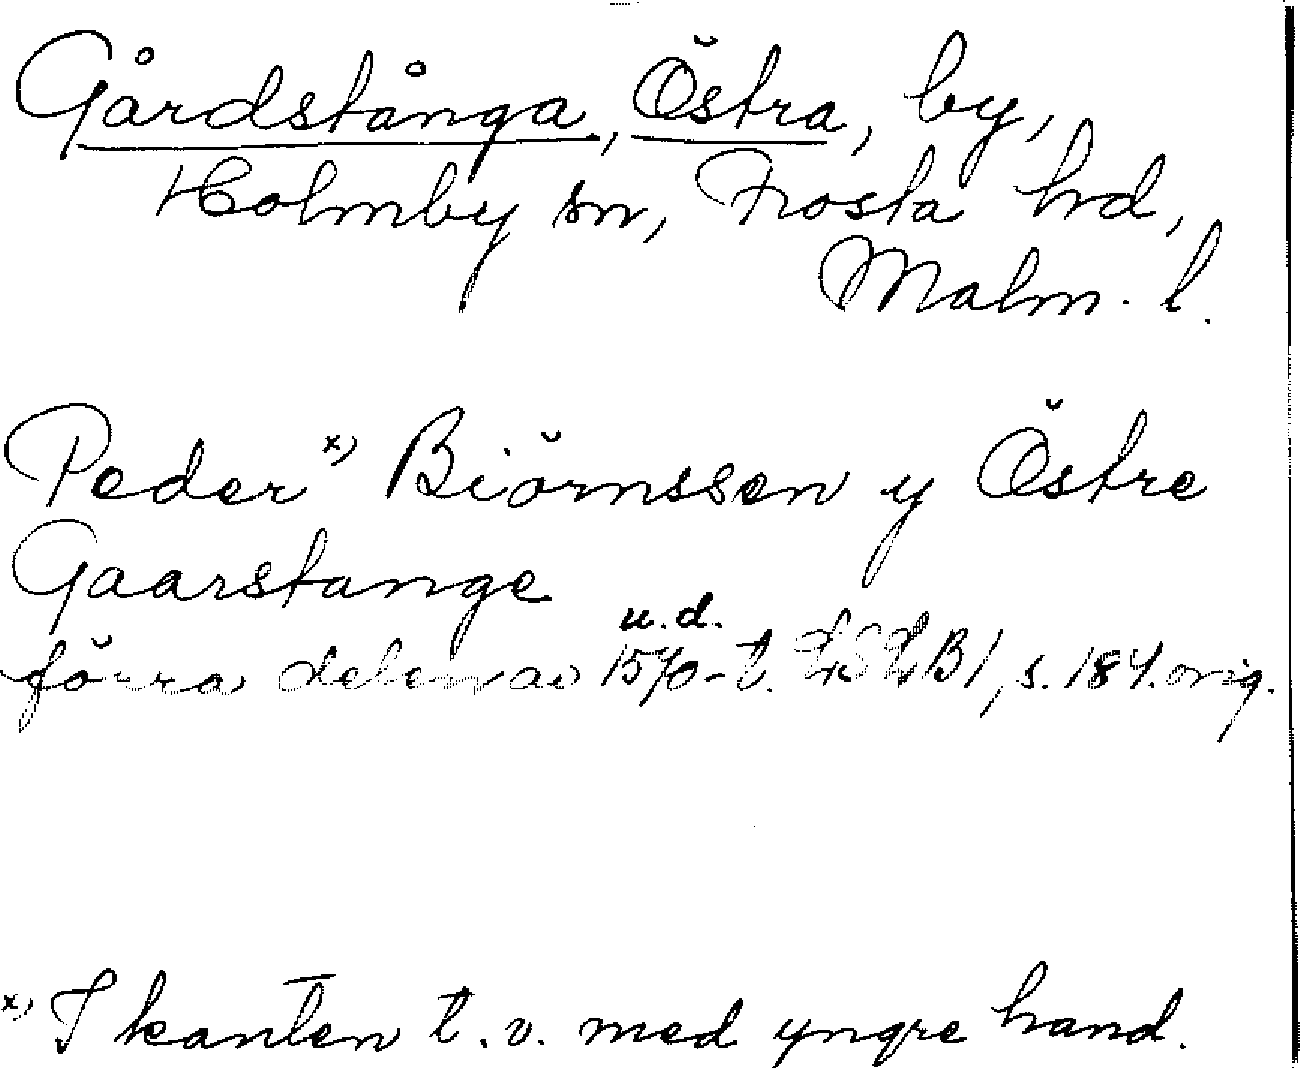 Gårdstånga, Östra, by,
Holmby sn, Frosta hd,
Malm. l.
Peder x) Biörnssen y Östre
Gaarstange
u.d.
förra delen av 1570-t. LSLB1, s. 184. orig.
x) I kanten t.v. med yngre hand.